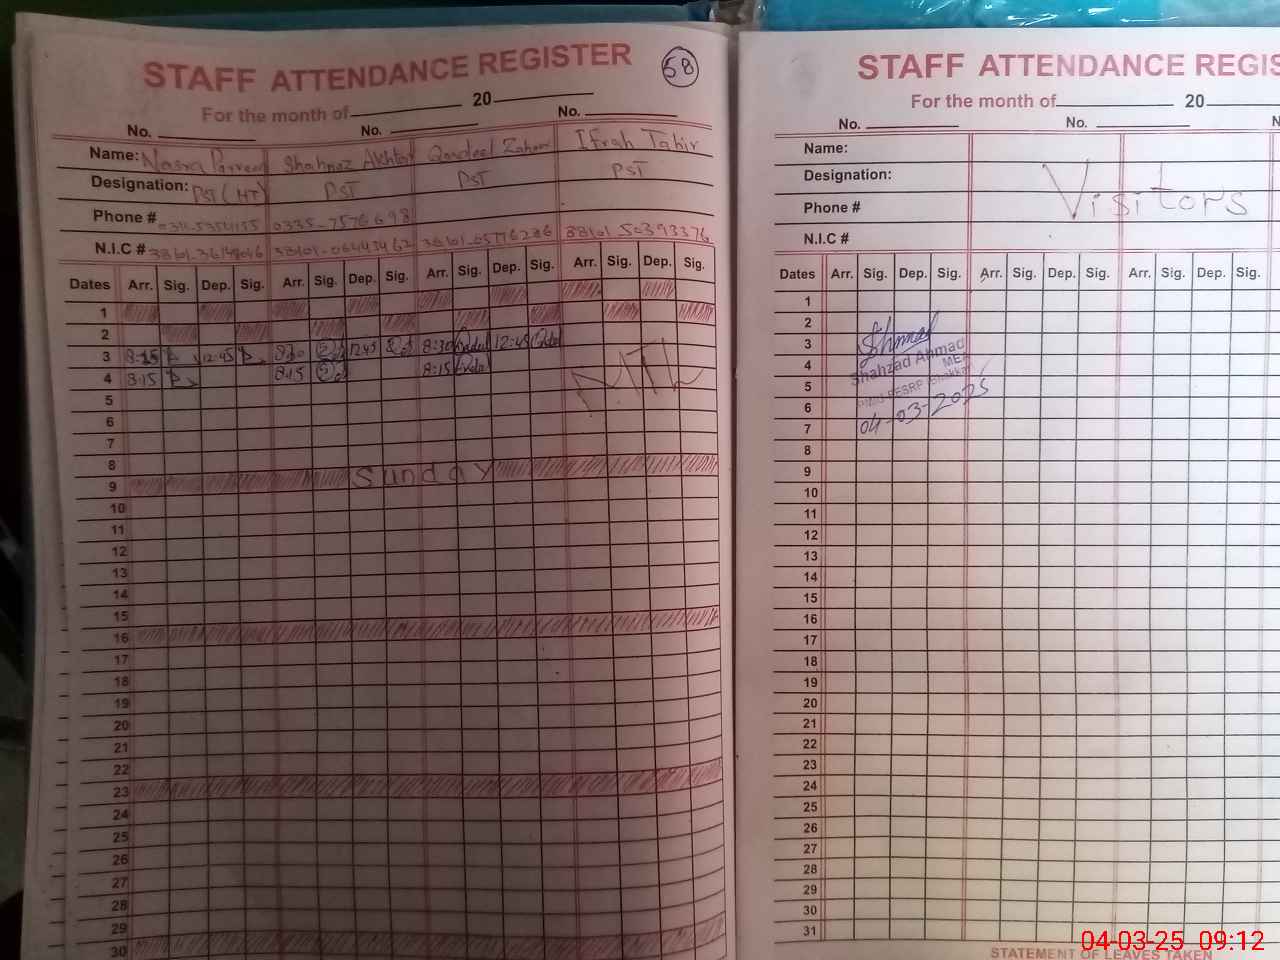 STAFF ATTENDANCE REGISTER
58
For the month of 20
No. No. No.
Name: Nasra Parveen Shahnaz Akhtar Qandeel Zahoor Ifrah Tahir
Designation: PST (HT) PST PST PST
Phone # 0335-7576698
N.I.C #
Dates Arr. Sig. Dep. Sig. Arr. Sig. Dep. Sig. Arr. Sig. Dep. Sig. Arr. Sig. Dep. Sig.
1
2
3 8:15 12:45 8:30 12:45 8:30 12:45
4 8:15 8:15 8:15
5
6
7
8
9 Sunday
10
11
12
13
14
15
16
17
18
19
20
21
22
23
24
25
26
27
28
29
30
STAFF ATTENDANCE REGIS
For the month of 20
No. No. N
Name:
Designation:
Visitors
Phone #
N.I.C #
Dates Arr. Sig. Dep. Sig. Arr. Sig. Dep. Sig. Arr. Sig. Dep. Sig.
1
2
3
4 Shahzad Ahmad
5 MEA
6
7 04-03-2025
8
9
10
11
12
13
14
15
16
17
18
19
20
21
22
23
24
25
26
27
28
29
30
31
STATEMENT OF LEAVES TAKEN
04-03-25 09:12